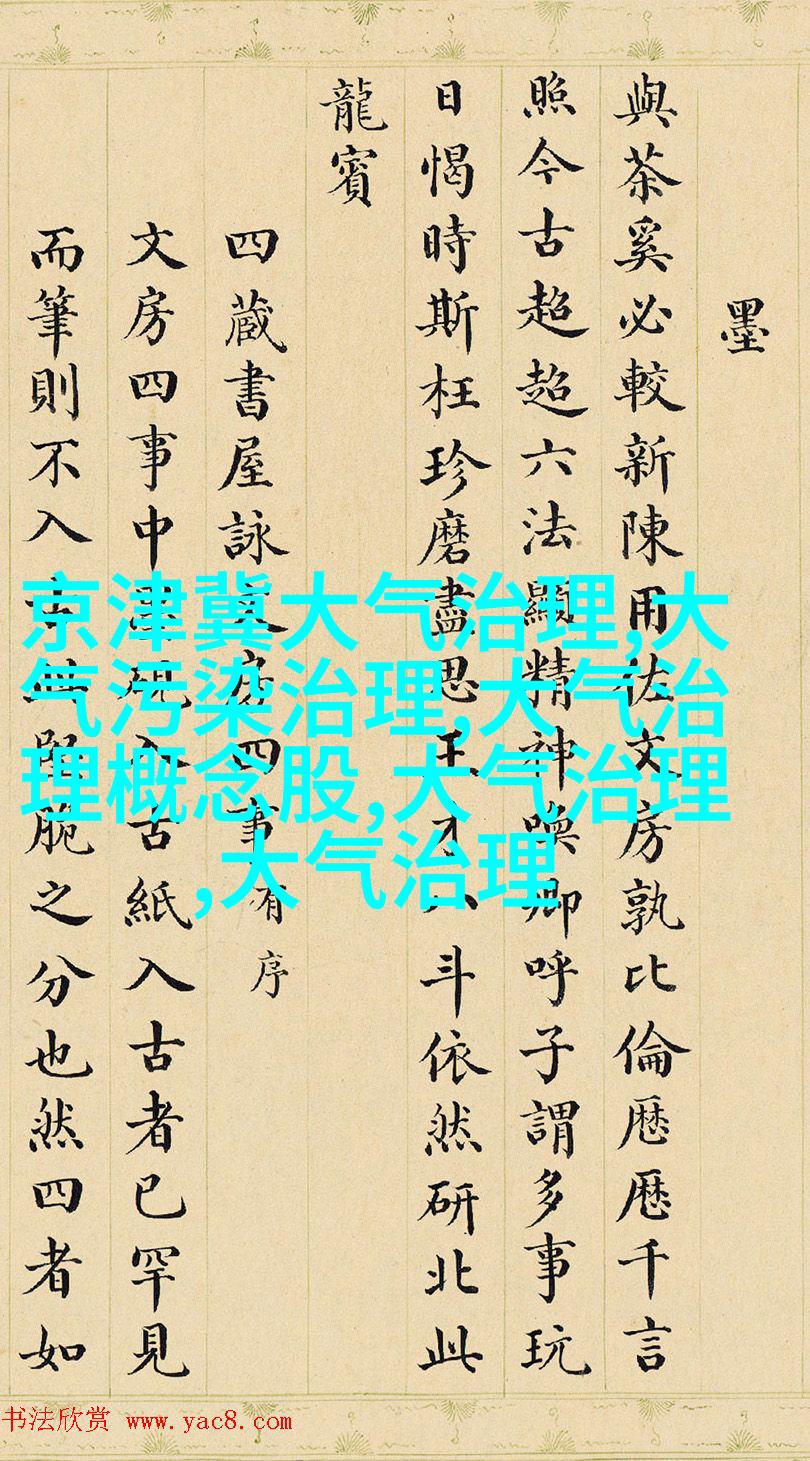 墨
與茶奚必較新陳用佐文房孰比倫厯厯千言
照今古超超六法顯精神喚卿呼子謂多事玩
日愒時斯枉珍磨盡思王才八斗依然研北此
龍賓
四蔵書屋詠文房四事有序
文房四事中墨硯入古紙入古者已罕見
而筆則不入古此堅脆之分也然四者如
京津冀大气治理,大
气污染治理,大气治
理概念股,大气治理
,大气治理
书法欣赏 www.yac8.com